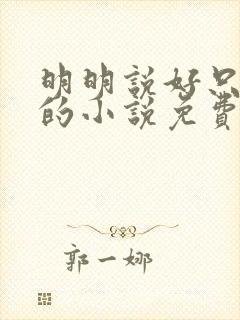 明明說好只
的小說免費
郭一娜